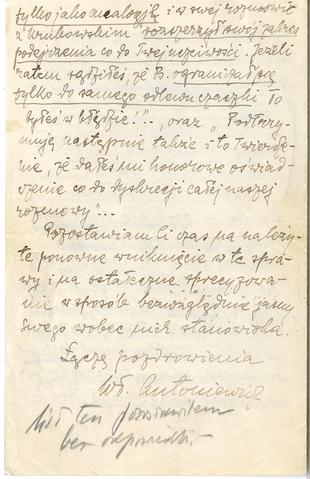 tylko jako analogję i w swej rozmowie
z Wnibowskim" rozszerzył swój zakres
podejrzenia co do Twej uczciwości. Jeżeli
zatem sądziłeś, że B. ograniczał się
tylko do samego odlewu czaszki to
byłeś w błędzie!"..., oraz "Podtrzy-
muję następnie także i to twierdze-
nie, że dałeś mi honorowe oświad-
czenie co do dyskrecji całej naszej
rozmowy"...
Pozostawiam Ci czas na należy-
te ponowne wniknięcie w te spra-
wy i na ostateczne sprecyzowa-
nie w sposób bezwzględnie jasny
Swego wobec mnie stanowiska.
Łączę pozdrowienia
Wł. Antoniewicz
List ten pozostawiłem
bez odpowiedzi.-